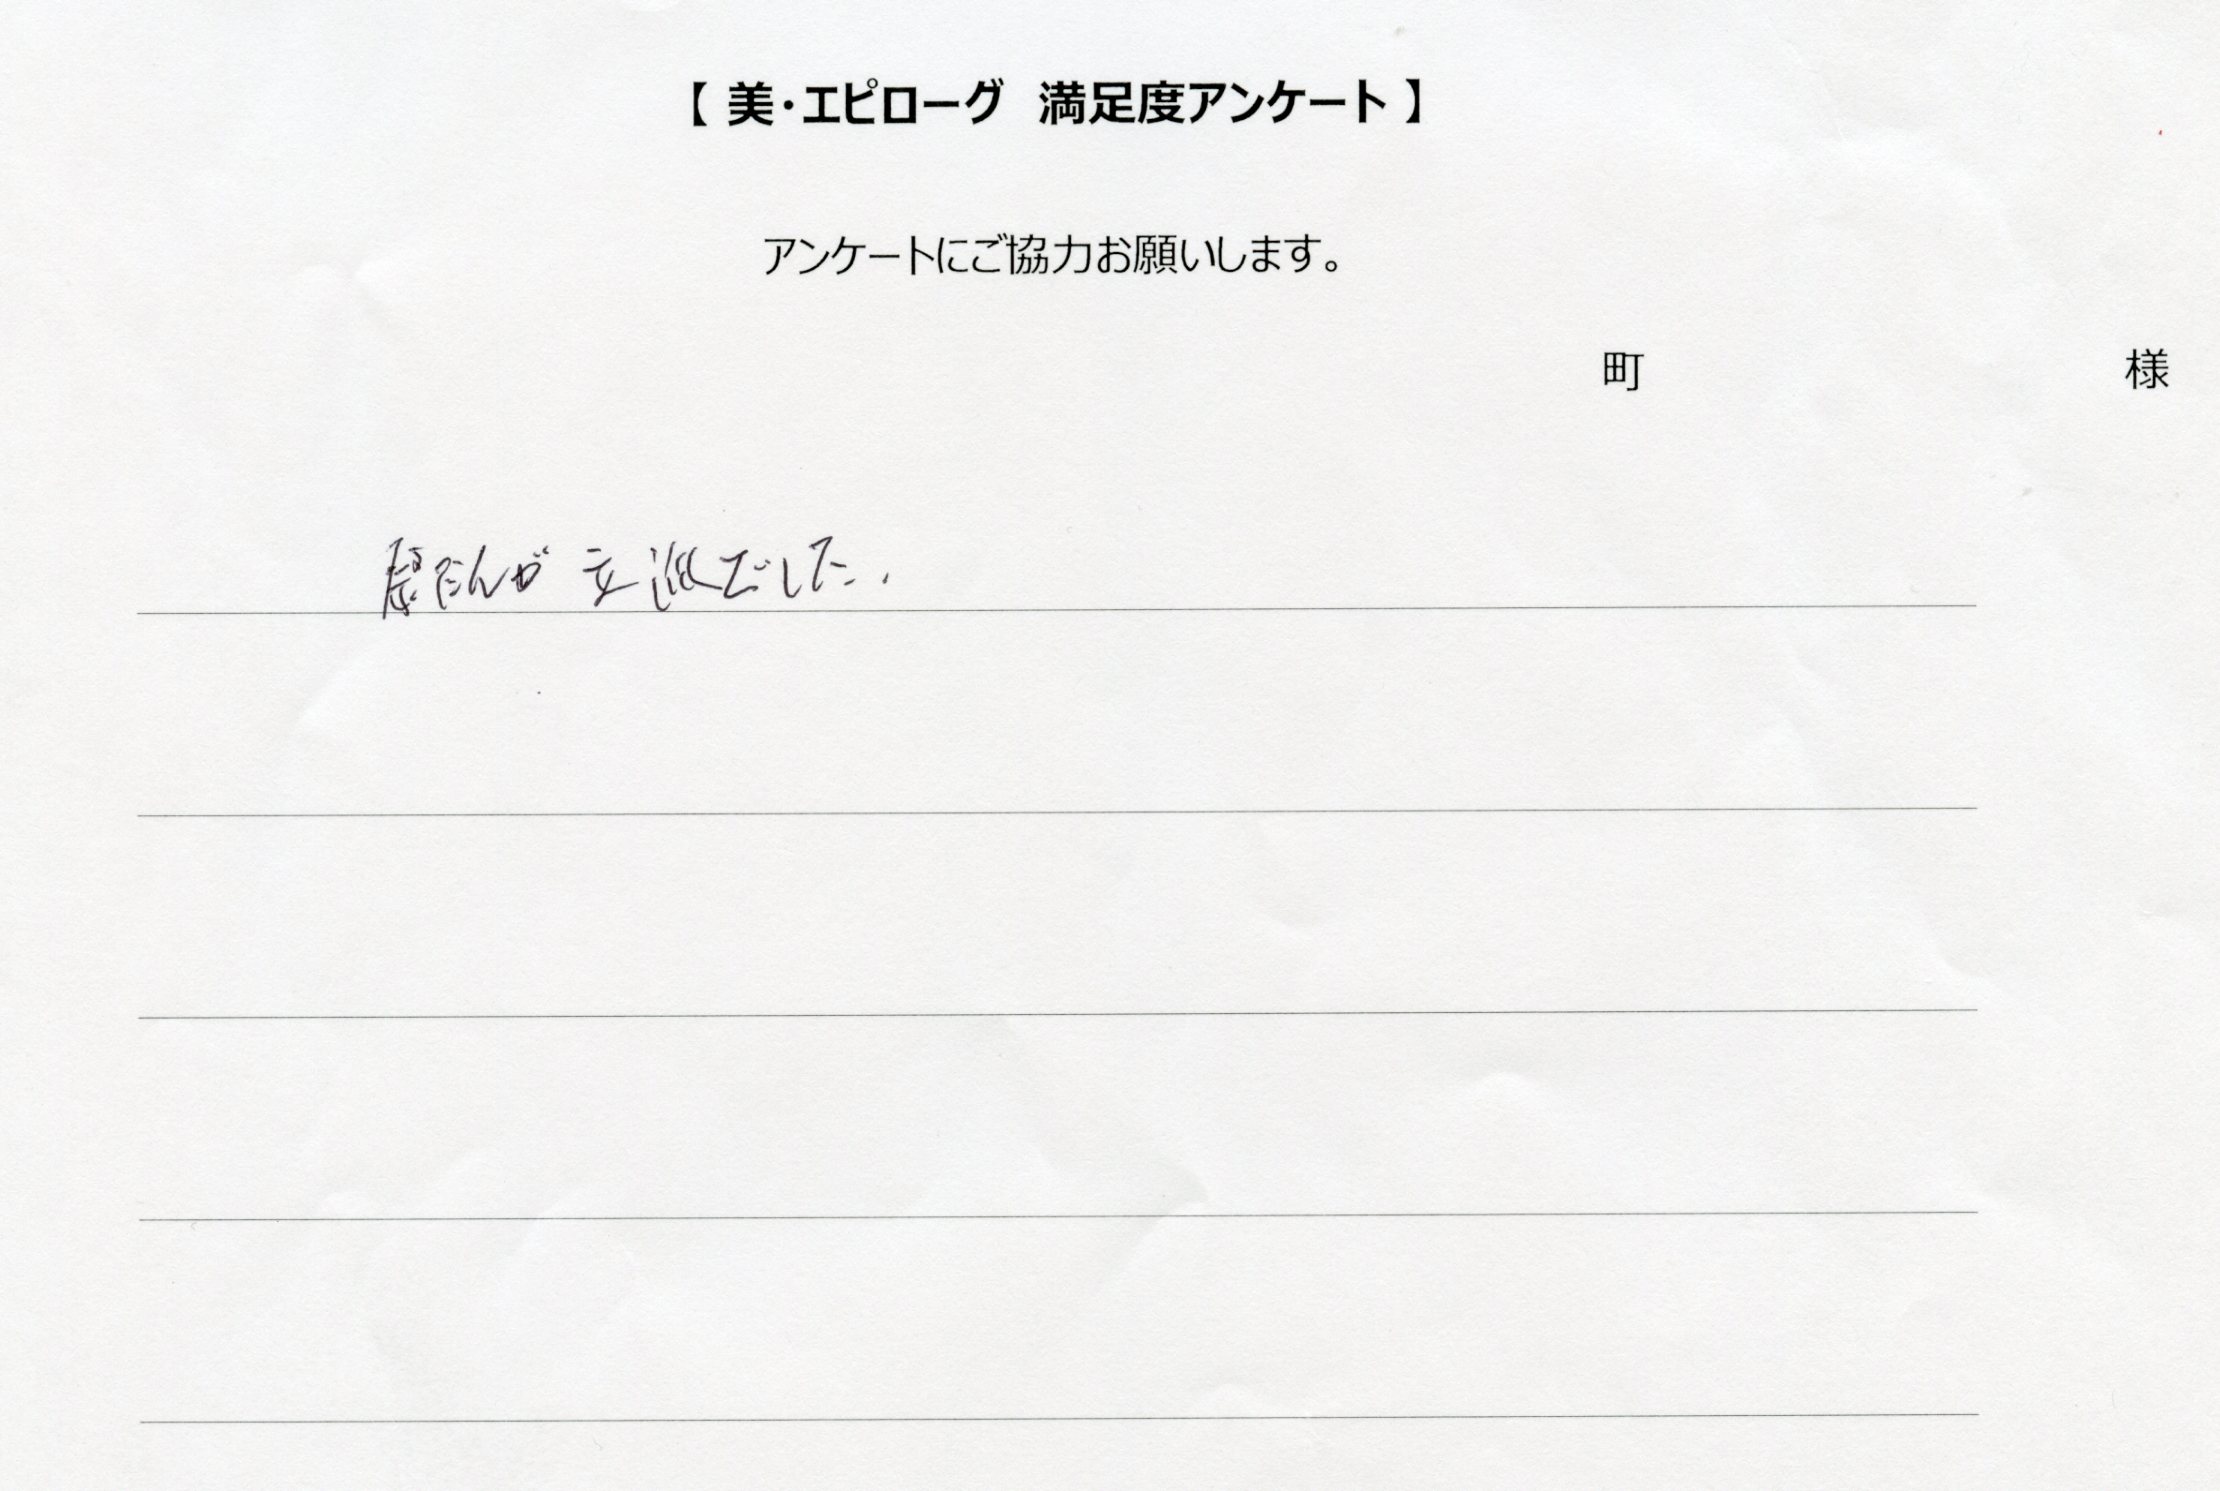 【 美・エピローグ 満足度アンケート 】
アンケートにご協力お願いします。
町 様
祭だんが 立派でした.